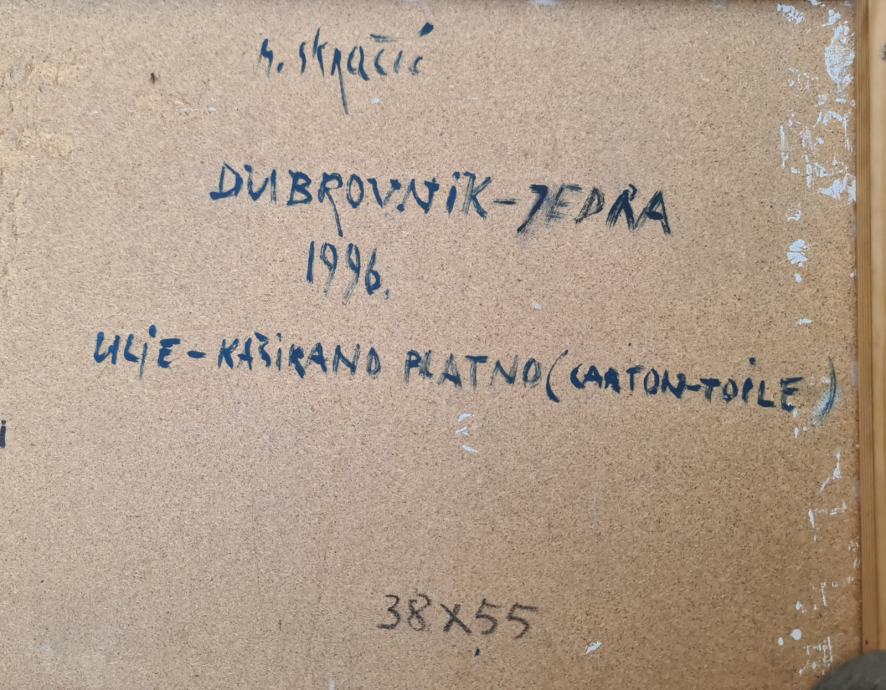 M. Skračić
DUBROVNIK-JEDRA
1996.
ULJE-KAŠIRANO PLATNO (CARTON-TOILE)
38X55